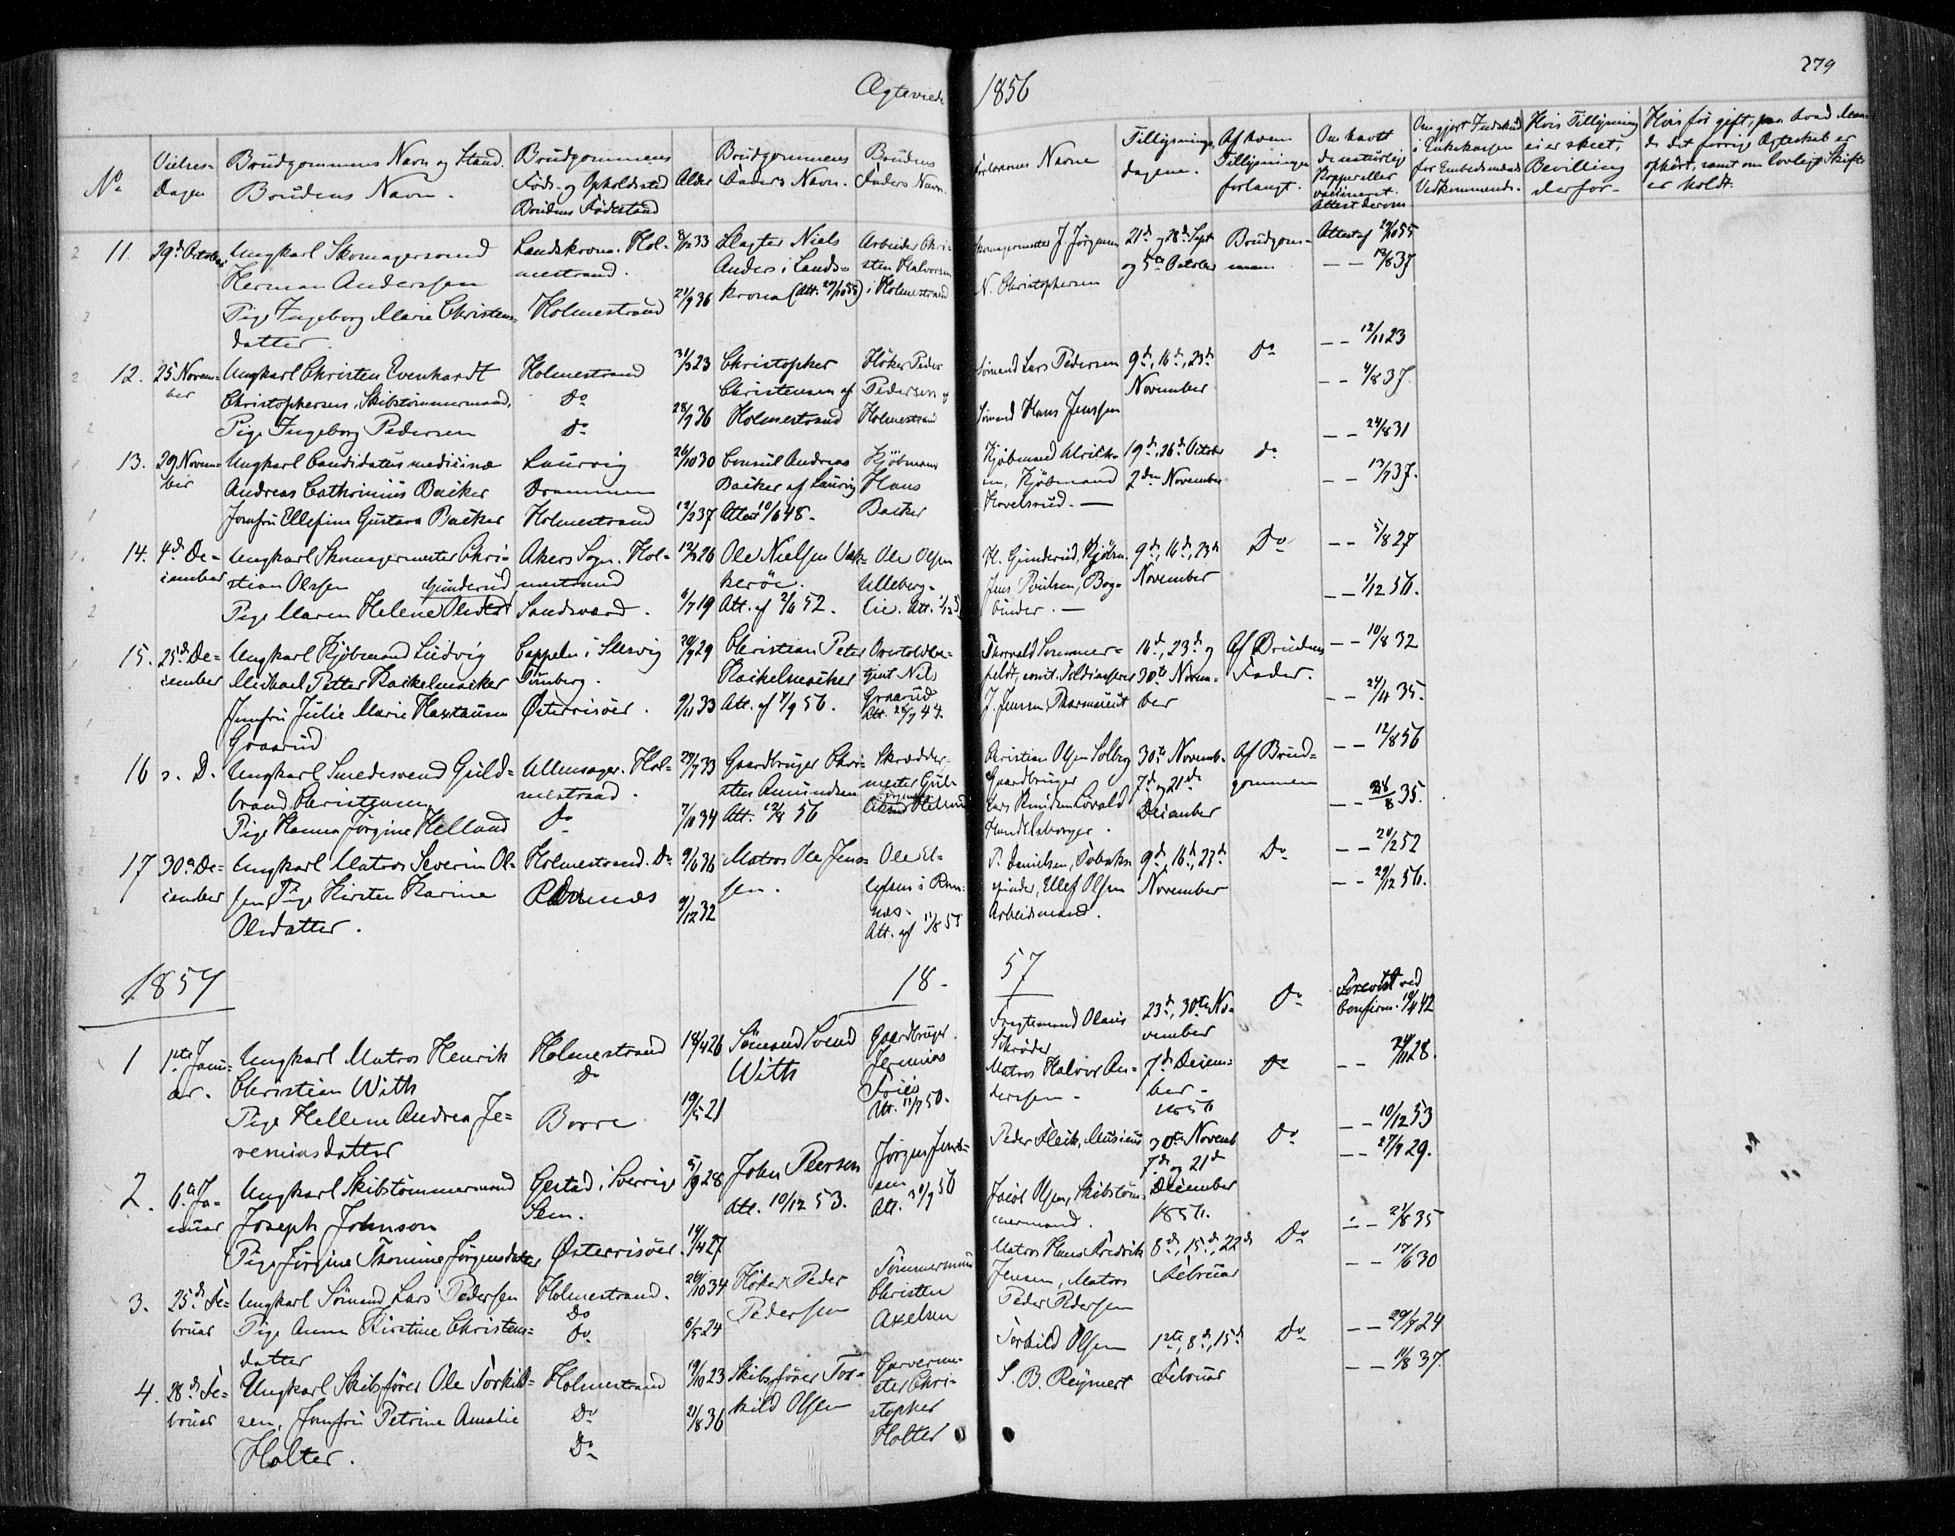 Ægteviede 1856
279
No
Vielses-
Dagen
Brudgommens Navn og Stand.
Brudens Navn.
Brudgommens
Føds- og Opholdssted
Brudens Fødestand
Alder
Brudgommens
Faders Navn.
Brudens
Faders Navn.
Forlovernes Navne
Tillysnings-
dagene.
Af hvem
Tillysningen
forlangt.
Om havt
de naturlige
Kopper eller
vaccineret.
Attest derom
Om gjort Indskud
i Enkekassen
for Embedsmænds
Vedkommende.
Hvis Tillysning
ei er skeet,
Bevilling
derfor
Hvis før gift, paa hvad Maa-
de det forrige Ægteskab er
ophørt, samt om lovligt Skifte
er holdt.
11. 29de October Ungkarl Skomagersvend
Herman Anderssen
Pige Ingeborg Marie Christens-
datter.
Landskrona. Hol-
mestrand.
Holmestrand
8/12 33
21/9 36
Slagter Niels
Anders i Lands-
krona (Att. 27/10 55)
Arbeider Chri-
sten Halvorsen
i Holmestrand
Skomagermester J. Jörgensen
N. Christophersen
21de og 28de Sept
og 5te October
Brudgom-
men
Attest af 29/10 55
— — 13/8 37
12. 25 Novem-
ber
Ungkarl Christen Evenhardt
Christophersen, Skibstömmermand,
Pige Ingeborg Pedersen
Holmestrand
Do
Do
31/3 23
28/9 36
Christopher
Christensen af
Holmestrand
Höker Peder
Pedersen af
Holmestrand
Sömand Lars Pedersen
Sömand Hans Jenssen
9de, 16de, 23de
November
Do
— — 12/11 23
— — 4/8 37
13. 29 Novem-
ber
Ungkarl Candidatus medicinæ
Andreas Cathrinius Backer
Jomfru Ellefine Gustava Backer
Laurvig
Drammen
Holmestrand
26/10 30
12/2 37
Consul Andreas
Backer af Laurvig
Attest 10/6 48.
Kjöbmand
Hans
Backer
Kjöbmand Ulrich-
sen, Kjöbmand
Hovelsrud. —
19de, 26de October
2den November
do
— — 24/8 31
— — 13/7 37.
14. 4de De-
cember
Ungkarl Skomagermester Chri-
stian Olssen
Gunderud
Pige Maren Helene Olsdatter
Akers Sogn. Hol-
mestrand
Sandsværd.
12/2 26
6/7 19
Ole Nielssen
Att. af 2/11 52.
Ole Olssen
Ulleberg-
lie. Att.
H. Gunderud, Kjöbm.
Jens Poulsen, Bog-
binder. —
9de, 16de, 23de
November
Do
— — 5/8 27
— — 1/12 56.
15. 25de De-
cember
Ungkarl Kjöbmand Ludvig
Michael Petter Kackelmacker
Jomfru Julie Marie Haxthausen
Graarud
Cappeln i Slesvig
Tünsberg.
Østerrisöer.
20/9 29
9/11 33
Christian Peter
Kackelmacker
Att. af 4/9 56.
Overtoldbe-
tjent Nils
Graarud
Att. 26/9 44.
Thorvald Sommer-
feldt, const. Toldkasserer
J. Jensen, Pharmaceut
16de, 23de og
30te Novem-
ber
Af Brudens
Fader.
— — 10/8 32
— — 24/11 35.
16 s. D. Ungkarl Smedesvend Guld-
brand Christensen
Pige Hanna Jørgine Helland
Ullensager. Hol-
mestrand.
Do
29/7 33
7/10 34
Gaardbruger Chri-
sten Amundsen
Att. 12/8 56
Skrædder-
mester Gulb.
Helland
Christian Olssen Solberg
Gaardbruger
Lars Knudsen Lövald
Handelsborger.
30te Novemb.
7de og 21de
December
Af Brud-
gommen
— — 12/8 56
— — 28/8 35.
17 30te De-
cember
Ungkarl Matros Severin Ol-
sen Pige Kirsten Karine
Olsdatter.
Holmestrand. Do
Ramnes
9/6 36
9/12 32
Matros Ole Jens-
sen.
Ole El-
lefsen i Ram-
næs.
Att. af 11/8 55
P. Danielsen, Tobaks-
spinder, Ellef Olsen
Arbeidsmand.
9de, 16de, 23de
November
Do
— — 20/1 52
— — 29/12 56.
1857
18-57
1 1ste Janu-
ar.
Ungkarl Matros Henrik
Christian With
Pige Hellene Andrea Je-
remiasdatter
Holmestrand
Do
Borre
18/4 26
19/5 21
Sömand Svend
With
Gaardbruger
Jeremias
Friis
Att. 11/7 50.
Fragtemand Olaus
Schröder
Matros Halvor An-
dersen.
23de, 30te No-
vember
7de Decem-
ber.
1856
Do
Do
Forevist ved
Confirm. 10/4 42
— — 24/11 28.
2. 6te Ja-
nuar
Ungkarl Skibstömmermand
Joseph Johnson
Pige Jørgine Thomine Jørgensdatter
Gestad i Sverrig
Sem.
Østerrisöer
5/9 28
14/4 27
John Peersen
Att. 10/12 53.
Jørgen Jens-
sen
Att. 30/9 56
Peder Fleik, Musicus
Jacob Olsen, Skibstöm-
mermand.
30te Novemb
7de og 21de
December
1856.
Do
— — 10/12 53
— — 27/9 29.
3. 25de Fe-
bruar
Ungkarl Sömand Lars Pedersen
Pige Anne Kirstine Christens-
datter
Holmestrand.
Do
Do
26/10 34
6/5 24
Höker Peder
Pedersen
Tømmermand
Christen
Axelsen
Matros Hans Fredrik
Jensen, Matros
Peder Pedersen
8de, 15de, 22de
Februar
Do
— — 21/8 35
— — 17/6 30
4. 28de Fe-
bruar
Ungkarl Skibsförer Ole Torkild-
sen, Jomfru Petrine Amalie
Holter.
Holmestrand
Do
Do
19/10 23
21/8 36
Skibsförer Tor-
kild Olsen
Garverme-
ster Chri-
stopher
Holter
Torkild Olsen
S. B. Reymert
1ste, 8de, 15de
Februar
Do
— — 29/8 24
— — 11/8 37